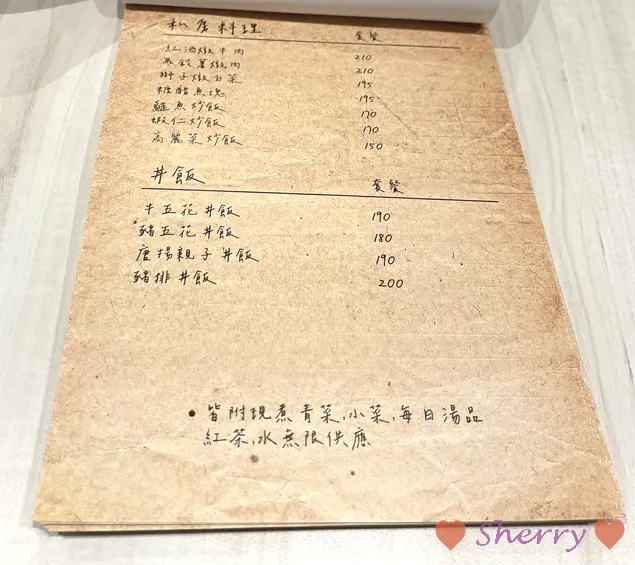 私房料理 套餐
紅酒燉牛肉 210
馬鈴薯燉肉 210
獅子燉白菜 195
糖醋魚塊 195
鮭魚炒飯 170
蝦仁炒飯 170
高麗菜炒飯 150
丼飯 套餐
牛五花丼飯 190
豬五花丼飯 180
唐揚親子丼飯 190
豬排丼飯 200
• 皆附現煮青菜,小菜,每日湯品
紅茶,水無限供應
Sherry